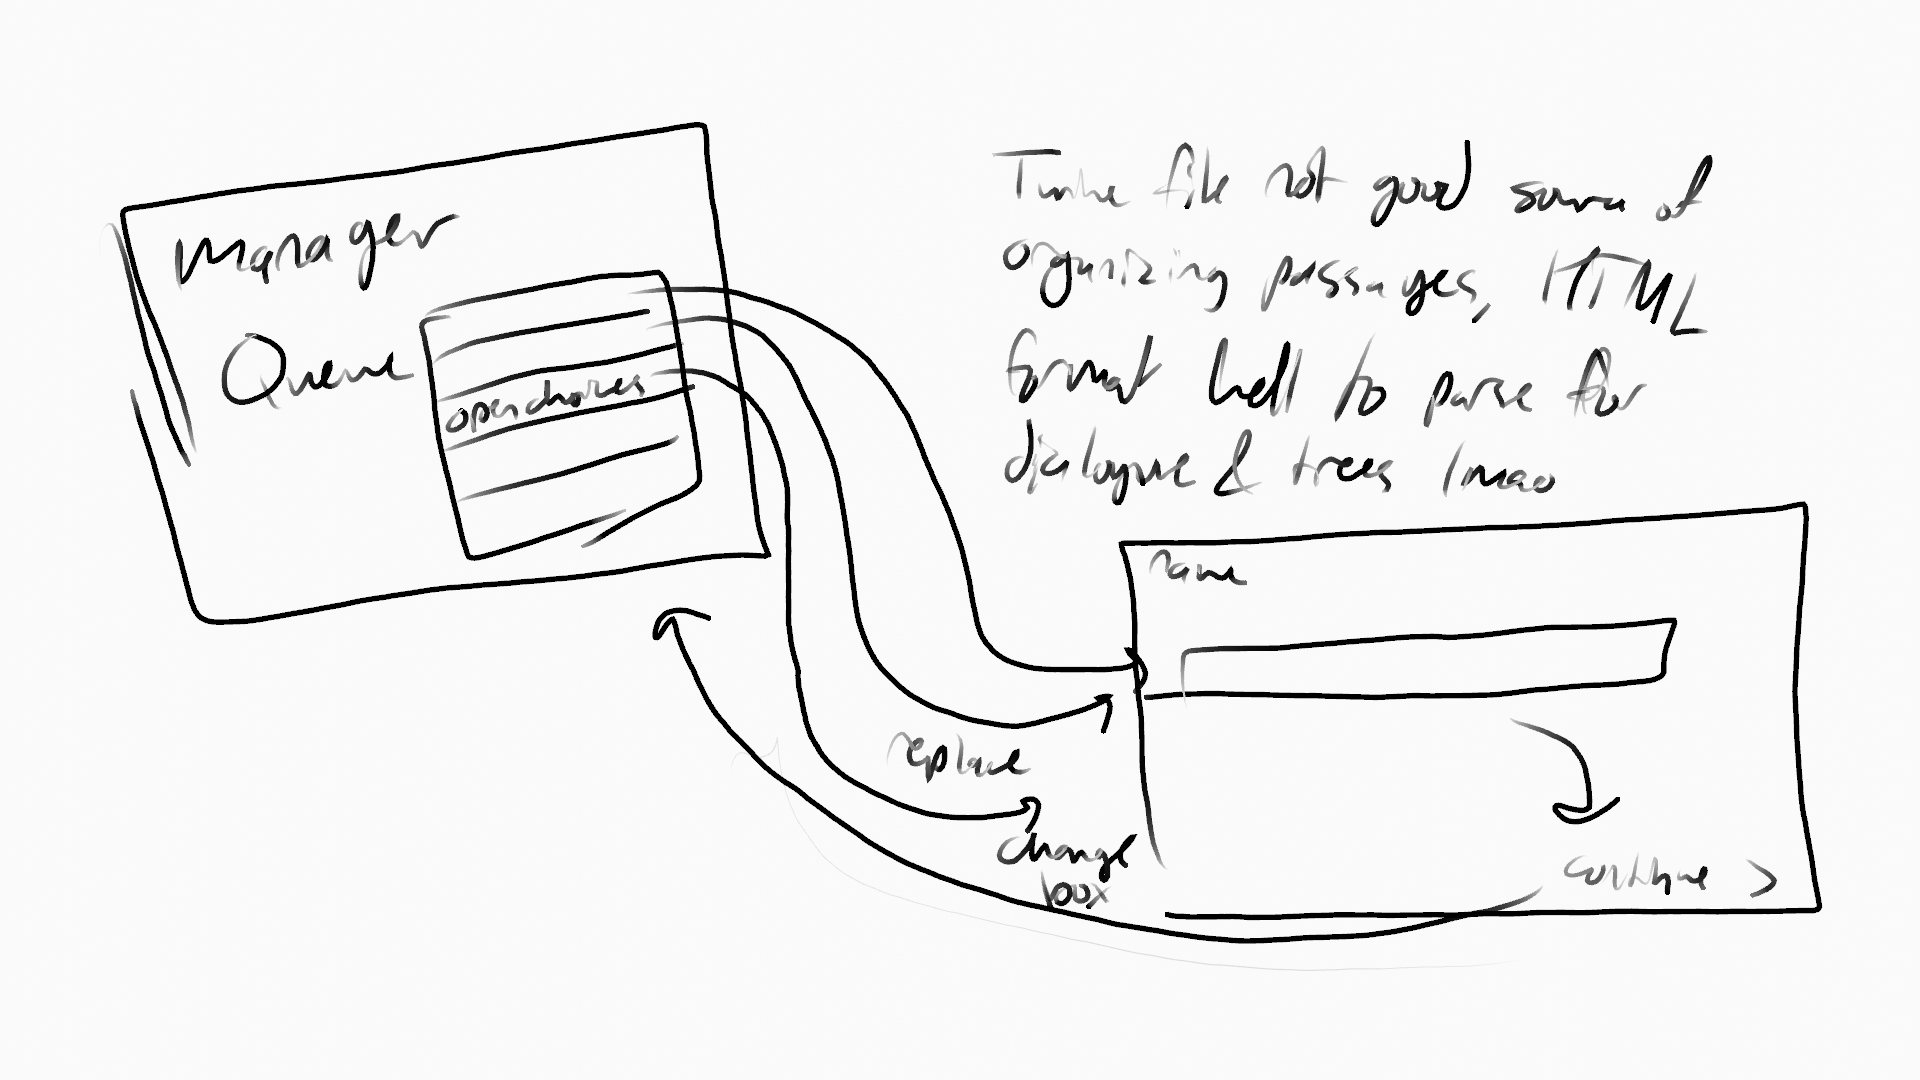 Manager
Queue
open choices
Twine file not good source of
organizing passages, HTML
format hell to parse for
dialogue & trees lmao
name
replace
change
box
continue >